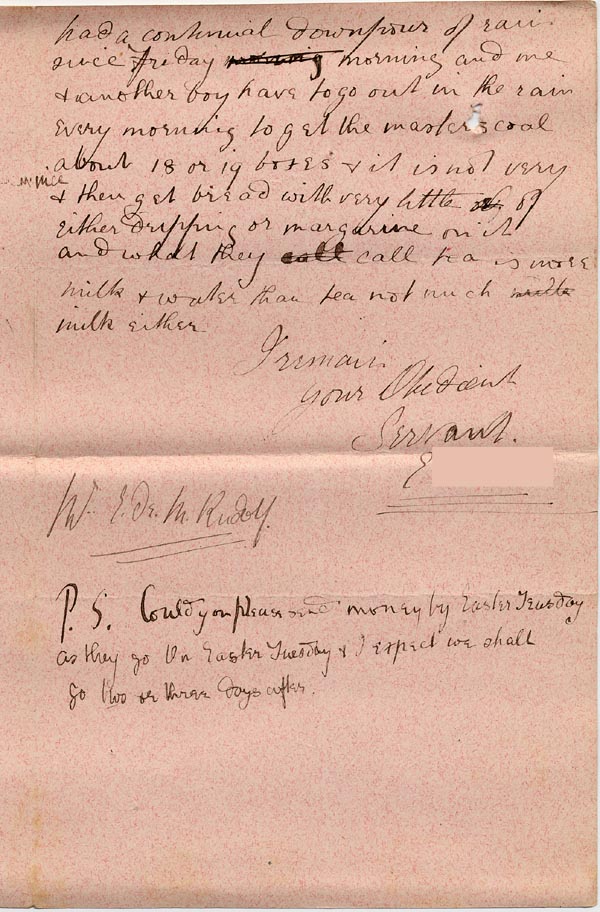 had a continual downpour of rain
since Friday morning and me
& another boy have to go out in the rain
every morning to get the masters coal
about 18 or 19 boxes & it is not very
nice
& then get bread with very little of
either dripping or margarine on it
and what they call call tea is more
milk & water than tea not much
milk either
I remain
your Obedient
Servant.
E
Mr E. de M. Rudolf.
P. S. Could you please send money by Easter Teusday
as they go On Easter Tuesday & I expect we shall
go two or three days after.